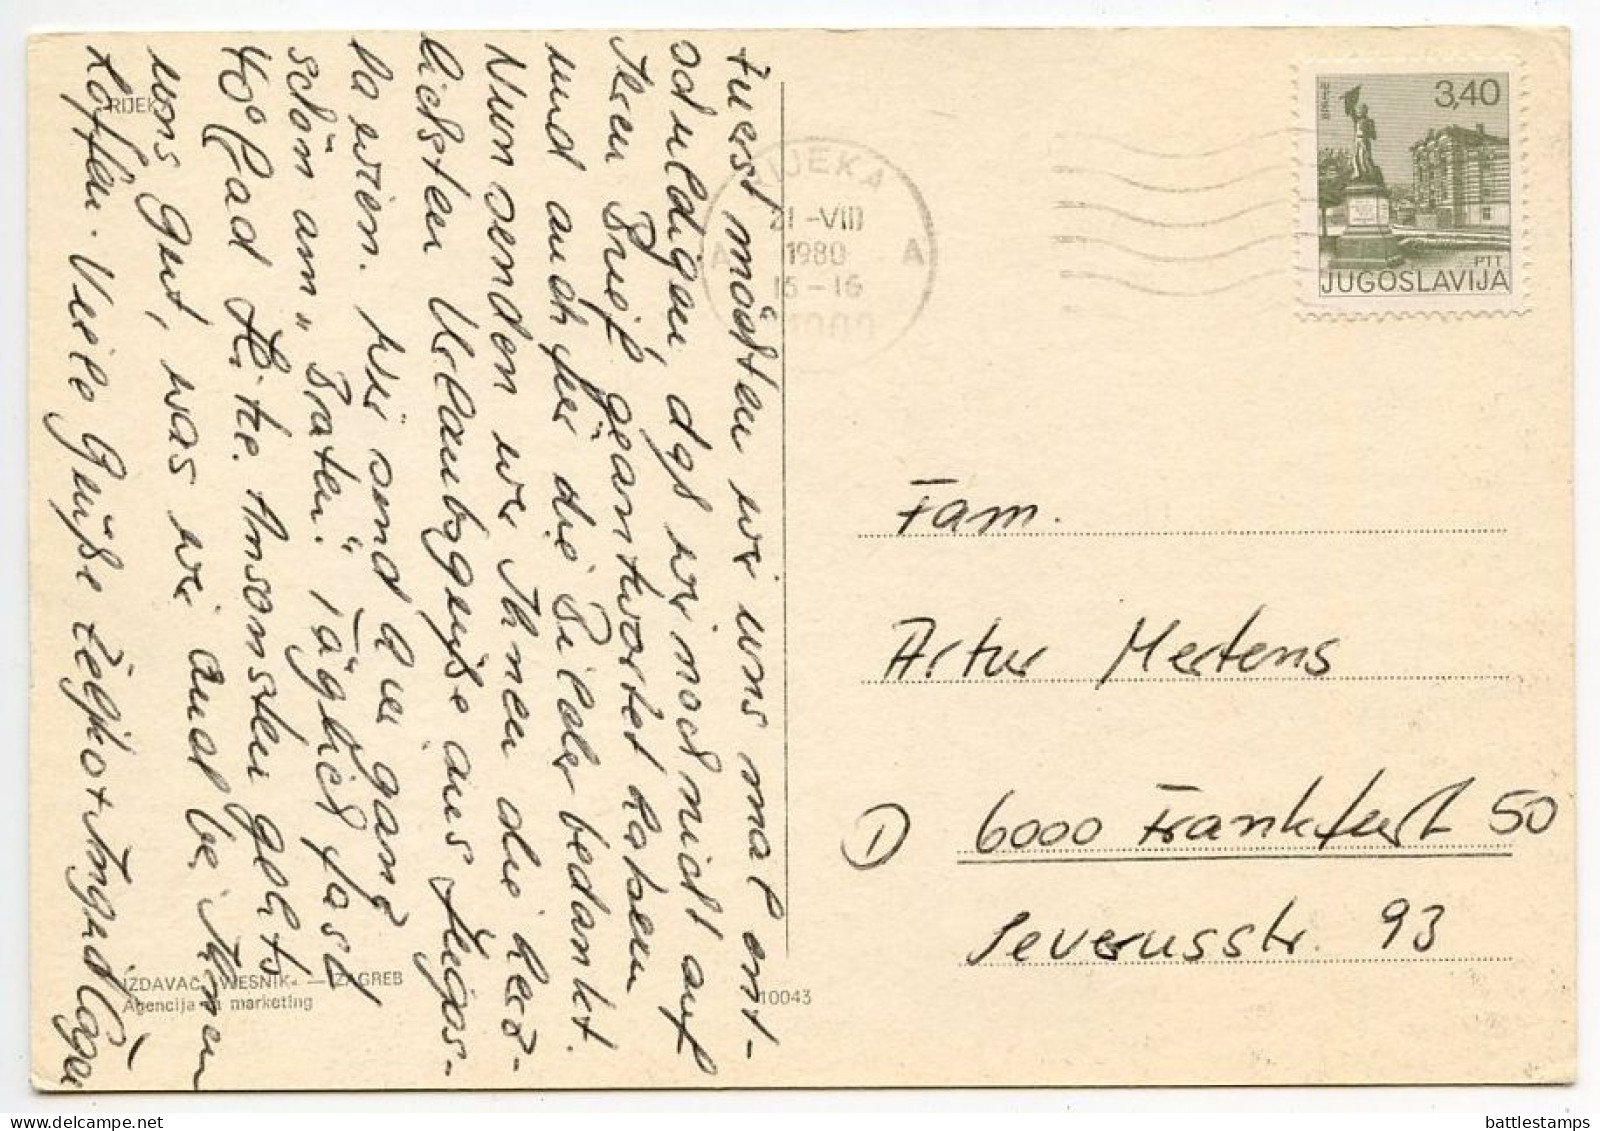 Zuerst möchten wir uns mal ent-
schuldigen, daß wir noch nicht auf
Ihren Brief geantwortet haben
und auch für die Bilder bedankt.
Nun senden wir Ihnen die herz-
lichsten Urlaubsgrüße aus Jugos-
lawien. Wir sind hier ganz
schön am "Braten". Täglich fast
40° Grad Hitze. Ansonsten geht's
uns gut, was wir auch bei Ihnen
hoffen. Viele Grüße Željko + Ingrid
RIJEKA
IZDAVAČ „VJESNIK“ — ZAGREB
Agencija za marketing
10043
RIJEKA
21-VIII
1980
15-16
A A
3,40
ŠTIP
PTT
JUGOSLAVIJA
Fam.
Artur Mertens
D 6000 Frankfurt 50
Severusstr. 93
battlestamps